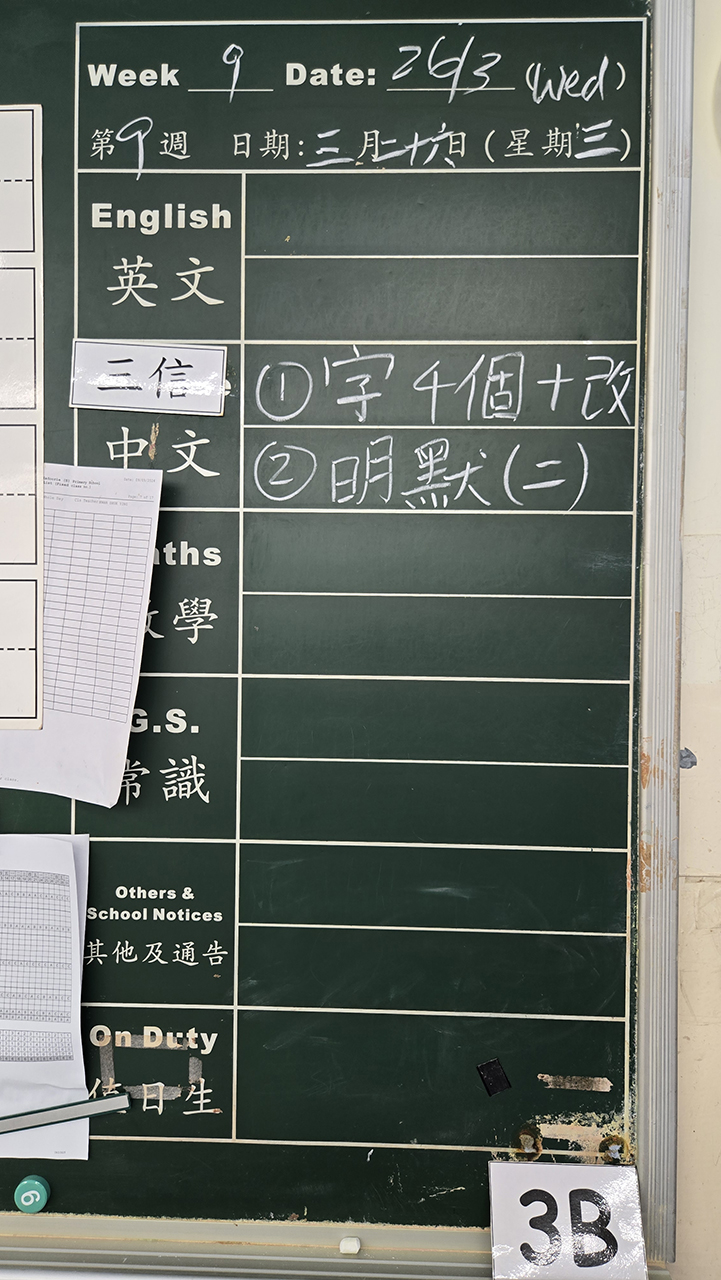 Week 9 Date: 26/3 (Wed)
第9週 日期:三月二十六日(星期三)
English
英文
三信
①字4個+改
中文
②明默(二)
學
G.S.
常識
Others &
School Notices
其他及通告
On Duty
值日生
6
3B